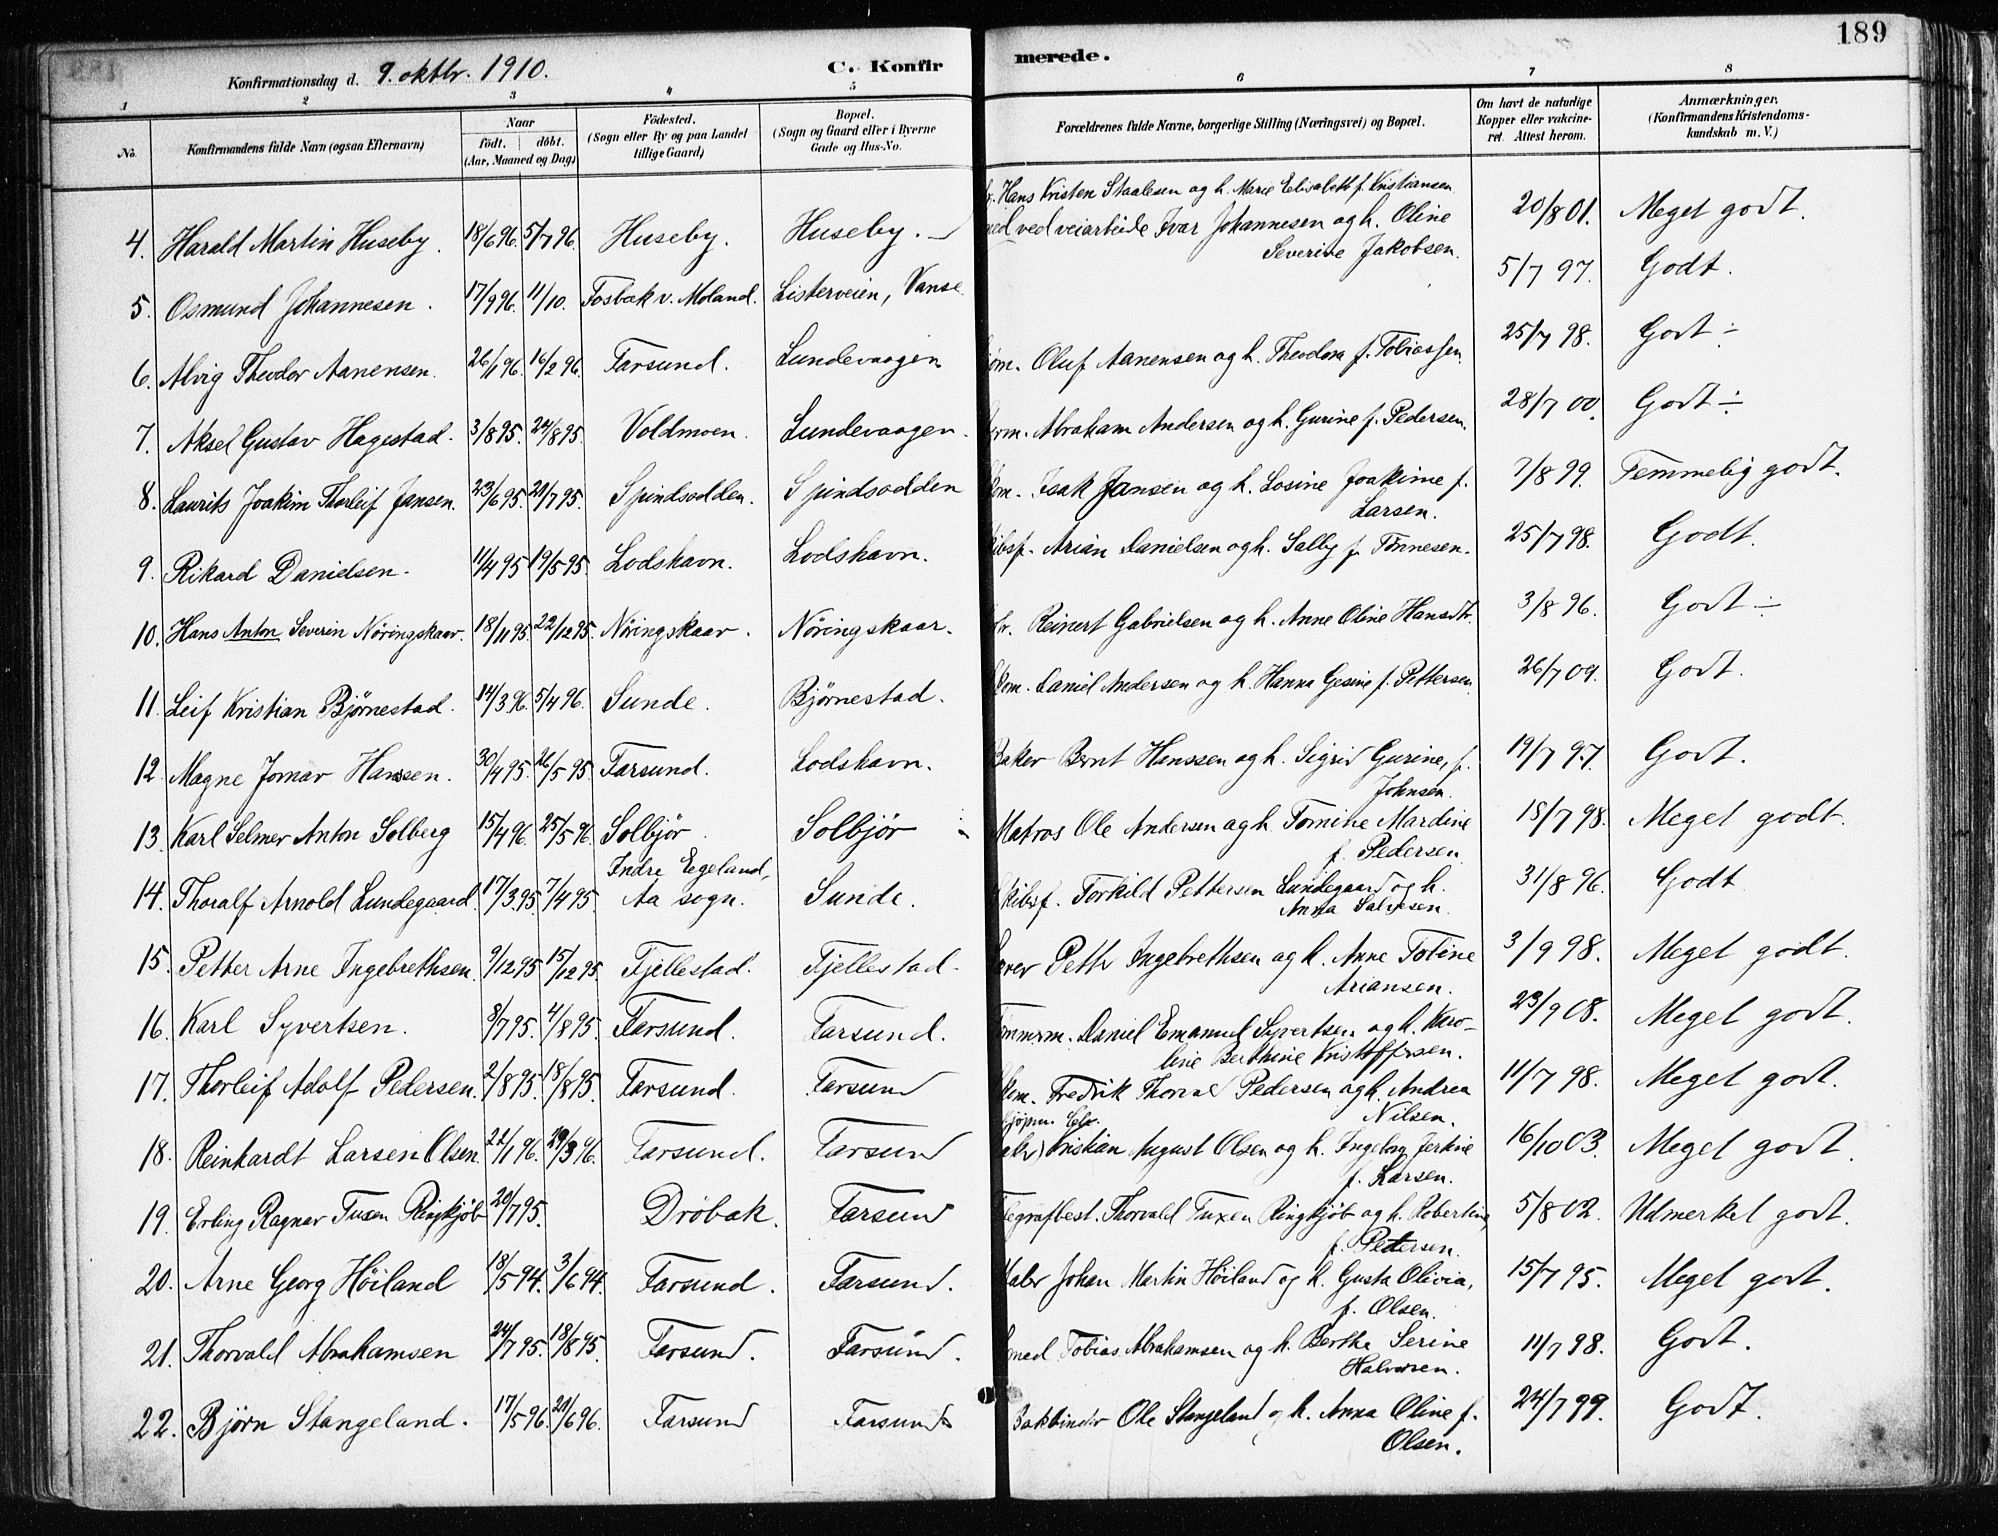 189
Konfirmationsdag d. 9. oktbr. 1910. C. Konfir merede.
1 2 3 4 5 6 7 8
No. Konfirmandens fulde Navn (ogsaa Efternavn) Naar født. døbt. (Aar, Maaned og Dag) Fødested. (Sogn eller By og paa Landet tillige Gaard) Bopæl. (Sogn og Gaard eller i Byerne Gade og Hus-No. Forældrenes fulde Navne, borgerlige Stilling (Næringsvei) og Bopæl. Om havt de naturlige Kopper eller vaccineret Attest herom. Anmærkninger, (Konfirmandens Kristendomskundskab m. V.)
4. Harald Martin Huseby. 18/6 96. 5/7 96. Huseby. Huseby. Hans Kristen Staalesen og h. Marie Elisabeth f. Kristiansen 20/8 01. Meget godt.
5. Osmund Johannesen. 17/9 96. 11/10. Fosbæk v. Moland. Listerveien, Vanse ved veiarbeide Ivar Johannesen og h. Oline Severine Jakobsen. 5/7 97. Godt.
6. Alvig Theodor Aanensen. 26/1 96. 16/2 96. Farsund. Lundevaagen Oluf Aanensen og h. Theodora f. Tobiassen. 25/7 98. Godt ÷
7. Aksel Gustav Hagestad. 3/8 95. 24/8 95. Voldmoen. Lundevaagen. Abraham Andersen og h. Gurine f. Pedersen. 28/7 00. Godt ÷
8. Laurits Joakim Thorleif Jansen. 23/6 95. 21/7 95. Spindsodden. Spindsodden Isak Jansen og h. Losine Joakime f. Larsen. 7/8 99. Temmelig godt.
9. Rikard Danielsen. 11/4 95 19/5 95. Lodshavn. Lodshavn. Arian Danielsen og h. Sally f. Tønnesen. 25/7 98. Godt.
10. Hans Anton Severin Nøringskaar. 18/11 95. 22/12 95. Nøringskaar. Nøringskaar. Reinert Gabrielsen og h. Anne Oline Hansdtr. 3/8 96. Godt ÷
11. Leif Kristian Bjørnestad. 14/3 96. 5/4 96. Sunde. Bjørnestad. Daniel Andersen og h. Hanna Gesine f. Pettersen 26/7 09. Godt.
12. Magne Jomar Hanssen. 30/4 95. 26/5 95 Farsund. Lodshavn. Baker Bernt Hanssen og h. Sigrid Gurine, f. Johnsen. 19/7 97. Godt.
13. Karl Selmer Anton Solberg 15/4 96. 25/5 96. Solbjør. Solbjør Matros Ole Andersen og h. Tomine Mardine f. Pedersen. 18/7 98. Meget godt.
14. Thoralf Arnold Lundegaard. 17/3 95. 7/4 95. Indre Egeland, Aa sogn. Sunde. Torkild Pettersen Lundegaard og h. Anna Salvesen. 31/8 96. Godt
15. Petter Arne Ingebrethsen. 9/12 95 15/12 95. Fjellestad. Fjellestad. Petter Ingebrethsen og h. Anne Tobine Ariansen. 3/9 98. Meget godt.
16. Karl Syvertsen. 8/7 95. 4/8 95. Farsund. Farsund. Tømmerm. Daniel Emanuel Syvertsen og h. Karoline Berthine Kristoffersen. 23/9 08. Meget godt.
17. Thorleif Adolf Pedersen. 2/8 95. 18/8 95. Farsund. Farsund Fredrik Thorval Pedersen og h. Andrea Nilsen. 11/7 98. Meget godt.
18. Reinhardt Larsen Olsen. 22/1 96. 29/3 96. Farsund. Farsund Kristian August Olsen og h. Ingeborg Jerkine f. Larsen. 16/10 03. Meget godt.
19. Erling Ragnar Tuxen Ringkjøb 20/7 95. Drøbak. Farsund Telegrafbest. Thorvald Tuxen Ringkjøb og h. Robertine f. Petersen. 5/8 02. Udmerket godt.
20. Arne Georg Höiland 18/5 94. 3/6 94. Farsund. Farsund. Maler Johan Martin Höiland og h. Gusta Olivia, f. Olsen. 15/7 95. Meget godt.
21. Thorvald Abrahamsen 24/7 95. 18/8 95. Farsund. Farsund. Smed Tobias Abrahamsen og h. Berthe Serine Halvorsen. 11/7 98. Godt.
22. Björn Stangeland. 17/5 96. 21/6 96. Farsund Farsund Bokbinder Ole Stangeland og h. Anna Oline f. Olsen. 24/7 99. Godt.